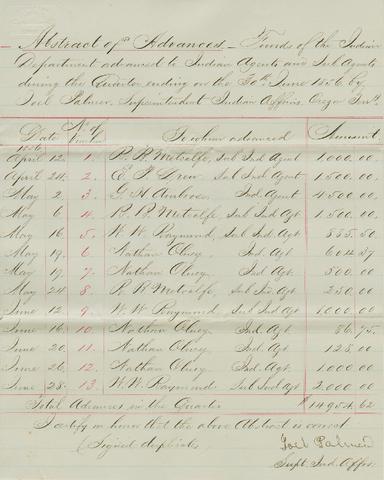 Abstract of Advances — Funds of the Indian
Department advanced to Indian Agents and Sub Agents
during the Quarter ending on the 30th June 1856 by
Joel Palmer, Superintendent Indian Affairs, Oregon
Date No. of Voucher To whom advanced Amount
1856
April 12. 1. R. R. Metcalfe, Sub Ind Agent 1,000.00
April 24. 2. E. P. Drew Sub Ind Agent 1,500.00
May 2. 3. G. H. Ambrose Ind. Agent 4,500.00
May 6 4. R. R. Metcalfe, Sub Ind Agt 1,500.00
May 16 5. W. W. Raymond, Sub Ind Agt 555.50
May 19. 6 Nathan Olney, Ind. Agt 604.37
May 19. 7. Nathan Olney, Ind Agt. 500.00
May 24 8. R. R. Metcalfe, Sub Ind. Agt 250.00
June 12 9. W. W. Raymond, Sub Ind Agt 1,000.00
June 16. 10. Nathan Olney Ind. Agt 86.75
June 20. 11. Nathan Olney Ind. Agt 128.00
June 26. 12. Nathan Olney Ind. Agt 1,000.00
June 28. 13. W. W. Raymond Sub Ind Agt 2,000.00
Total Advances in the Quarter $14,954.62
I certify on honor that the above Abstract is correct
(Signed duplicates)
Joel Palmer
Supt. Ind. Affrs.